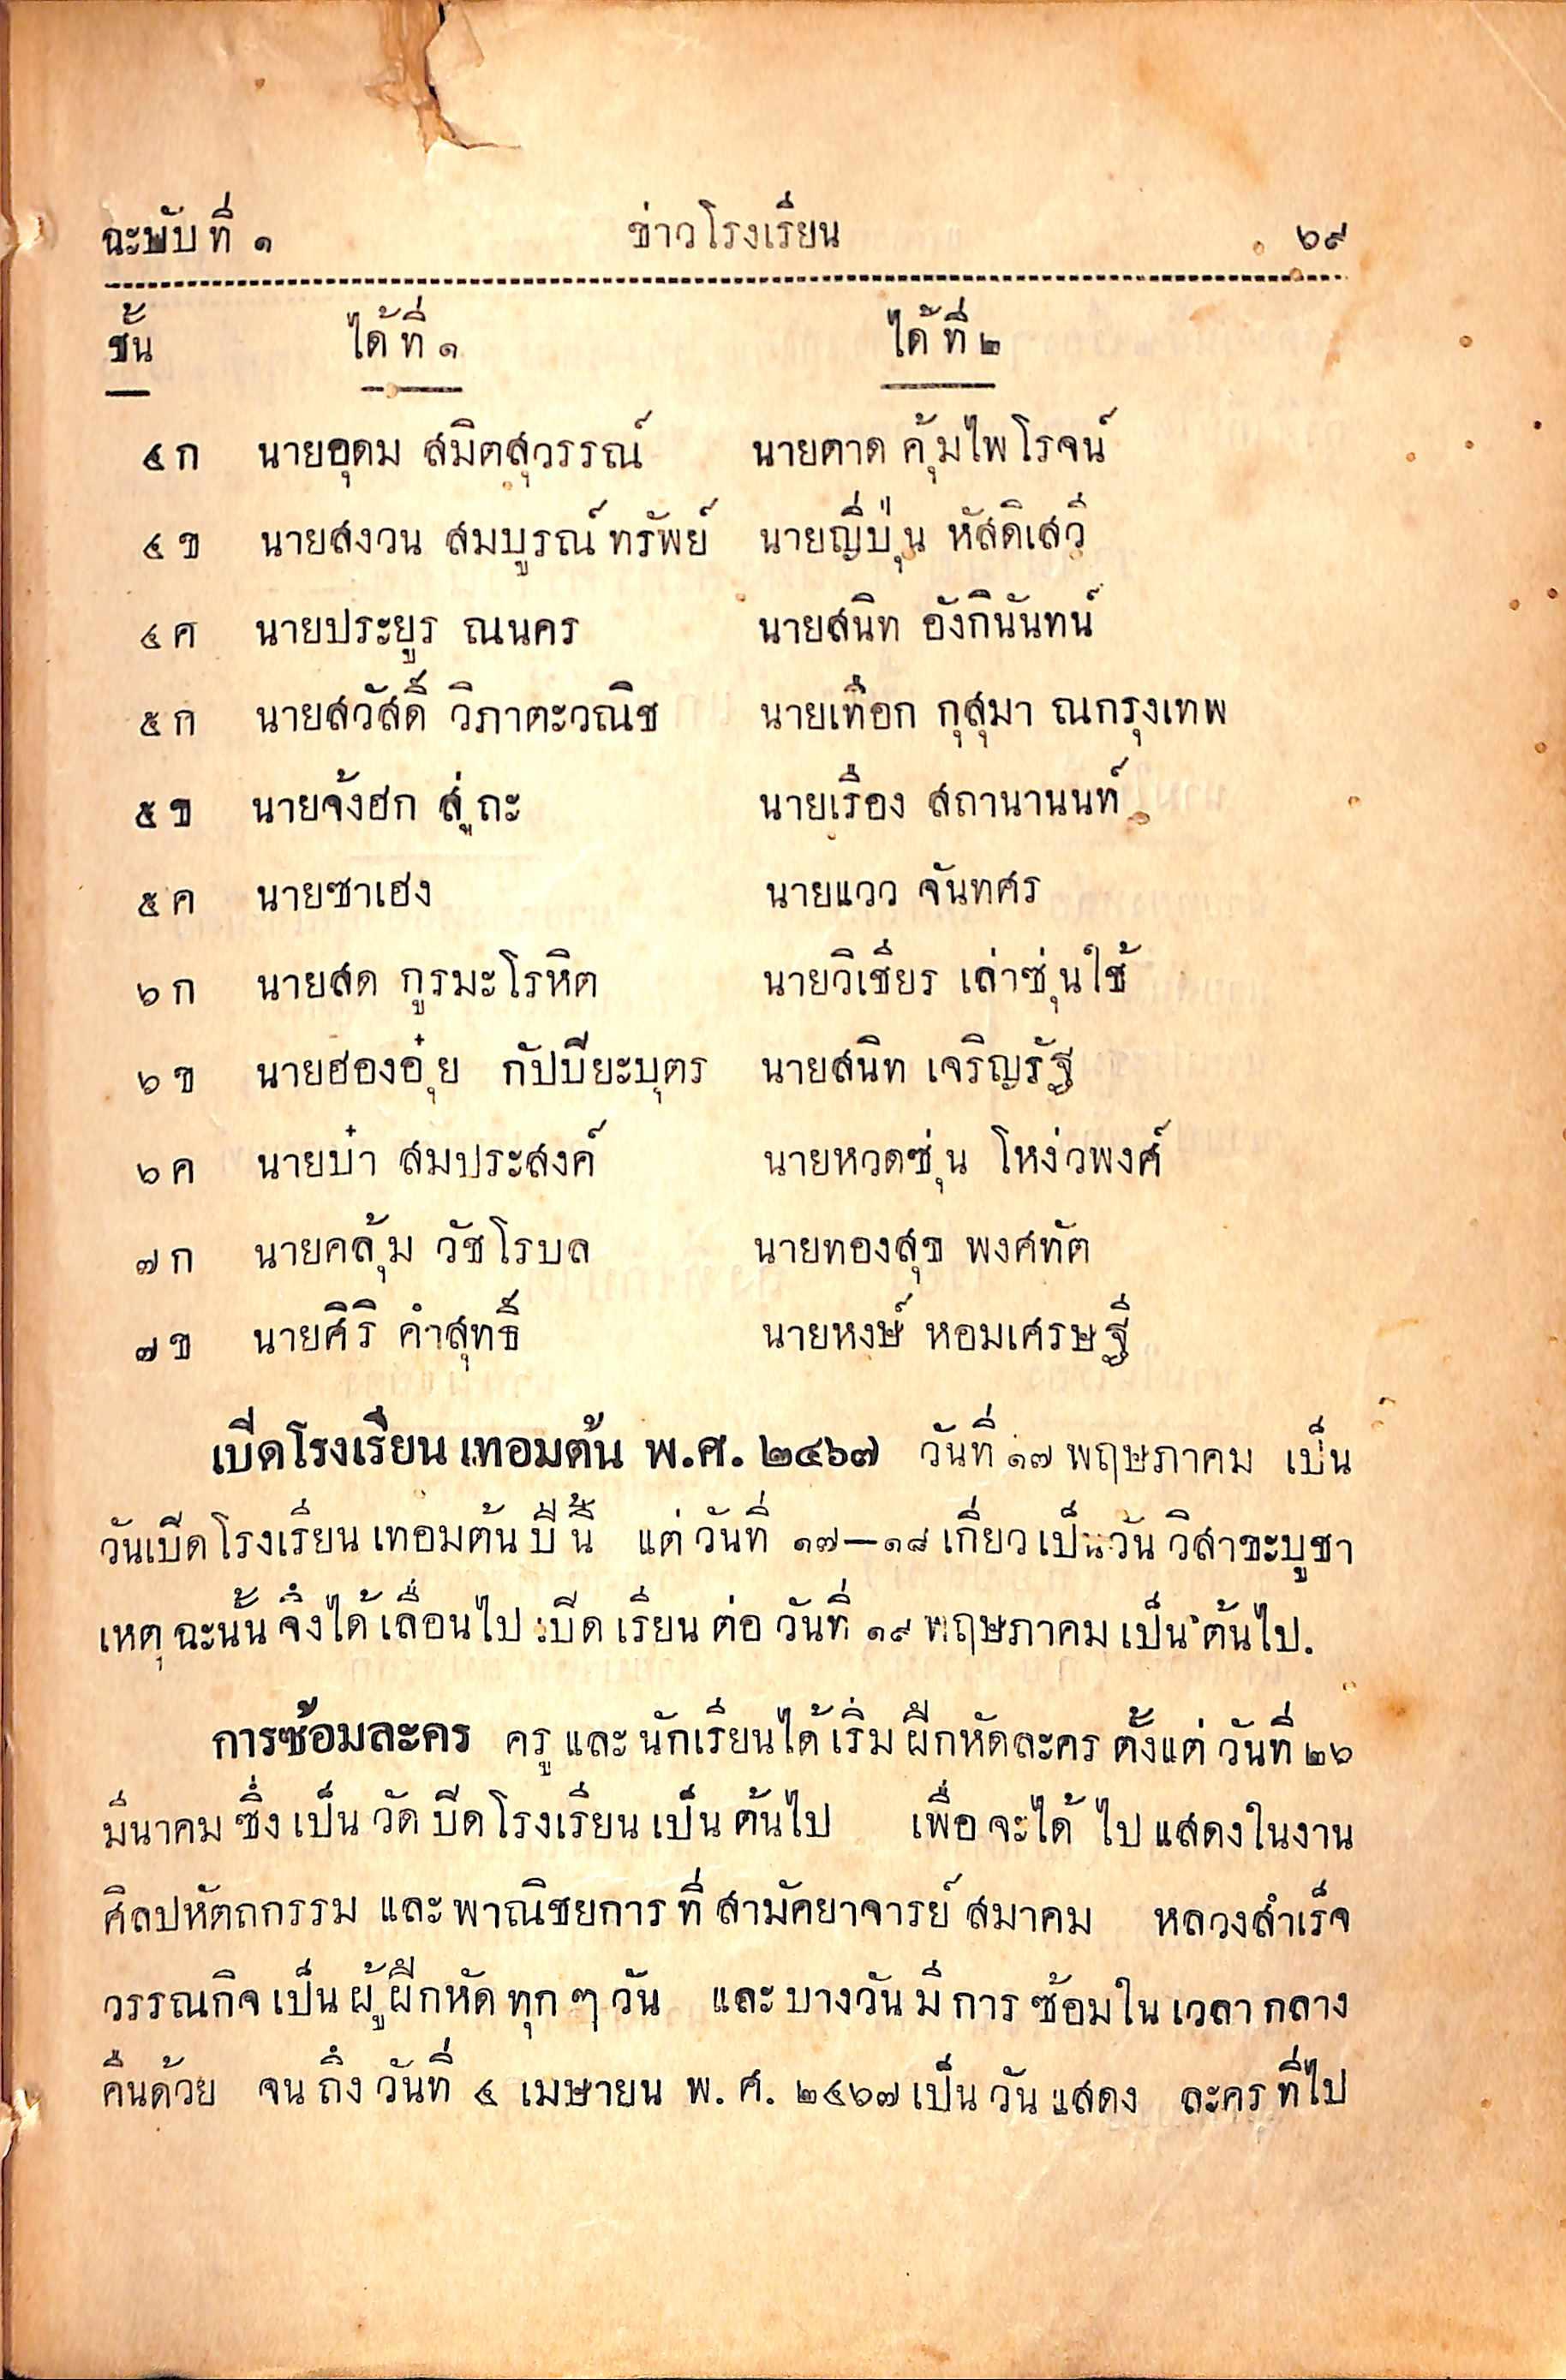 ฉะพับที่ ๑ ข่าวโรงเรียน ๖๙
ชั้น ได้ที่ ๑ ได้ที่ ๒
๔ ก นายอุดม สมิตสุวรรณ์ นายตาด คุ้มไพโรจน์
๔ ข นายสงวน สมบูรณ์ทรัพย์ นายญี่ปุ่น หัสดิเสวี
๔ ค นายประยูร ณนคร นายสนิท อังกินันทน์
๕ ก นายสวัสดิ์ วิภาตะวณิช นายเทือก กุสุมา ณกรุงเทพ
๕ ข นายจังฮก สู่ถะ นายเรือง สถานานนท์
๕ ค นายซาเฮง นายแวว จันทศร
๖ ก นายสด กูรมะโรหิต นายวิเชียร เล่าซุ่นใช้
๖ ข นายฮองอุ๋ย กัปบียะบุตร นายสนิท เจริญรัฐ
๖ ค นายบ๋า สมประสงค์ นายหวดซุ่น โหง่วพงศ์
๗ ก นายคลุ้ม วัชโรบล นายทองสุข พงศทัต
๗ ข นายศิริ คำสุทธิ์ นายหงษ์ หอมเศรษฐี
เปิดโรงเรียนเทอมต้น พ.ศ. ๒๔๖๗ วันที่ ๑๗ พฤษภาคม เป็น
วันเปิดโรงเรียนเทอมต้นปีนี้ แต่วันที่ ๑๗—๑๘ เกี่ยวเป็นวันวิสาขะบูชา
เหตุฉะนั้นจึงได้เลื่อนไปเปิดเรียนต่อวันที่ ๑๙ พฤษภาคมเป็นต้นไป.
การซ้อมละคร ครูและนักเรียนได้เริ่มฝึกหัดละครตั้งแต่วันที่ ๒๖
มีนาคมซึ่งเป็นวัดปิดโรงเรียนเป็นต้นไป เพื่อจะได้ไปแสดงในงาน
ศิลปหัตถกรรม และพาณิชยการที่สามัคยาจารย์สมาคม หลวงสำเร็จ
วรรณกิจเป็นผู้ฝึกหัดทุก ๆ วัน และบางวันมีการซ้อมในเวลากลาง
คืนด้วย จนถึงวันที่ ๔ เมษายน พ.ศ. ๒๔๖๗ เป็นวันแสดง ละครที่ไป